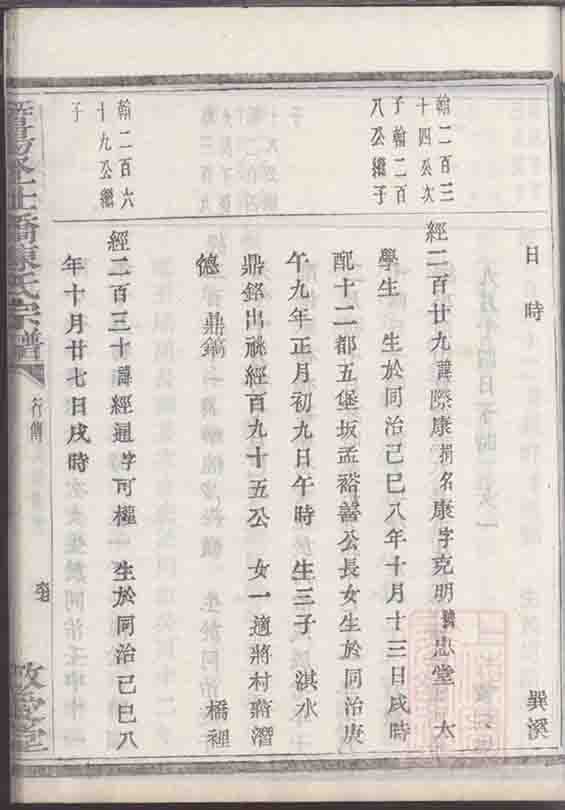 日　時　巽溪
翰二百三
十四公次
子翰二百
八公繼子
經二百廿九諱際康捐名康字克明號忠堂　太
學生　生於同治己巳八年十月十三日戌時
配十二都五堡坂孟裕善公長女生於同治庚
午九年正月初九日午時　生三子　淇水
鼎銘出祧經百九十五公　女一適將村蔣潛
德　鼎鎬　橋裡
翰二百六
十九公繼
子
經二百三十諱經通字可權　生於同治己巳八
年十月廿七日戌時
橋陳氏宗譜
行傳
敦堂